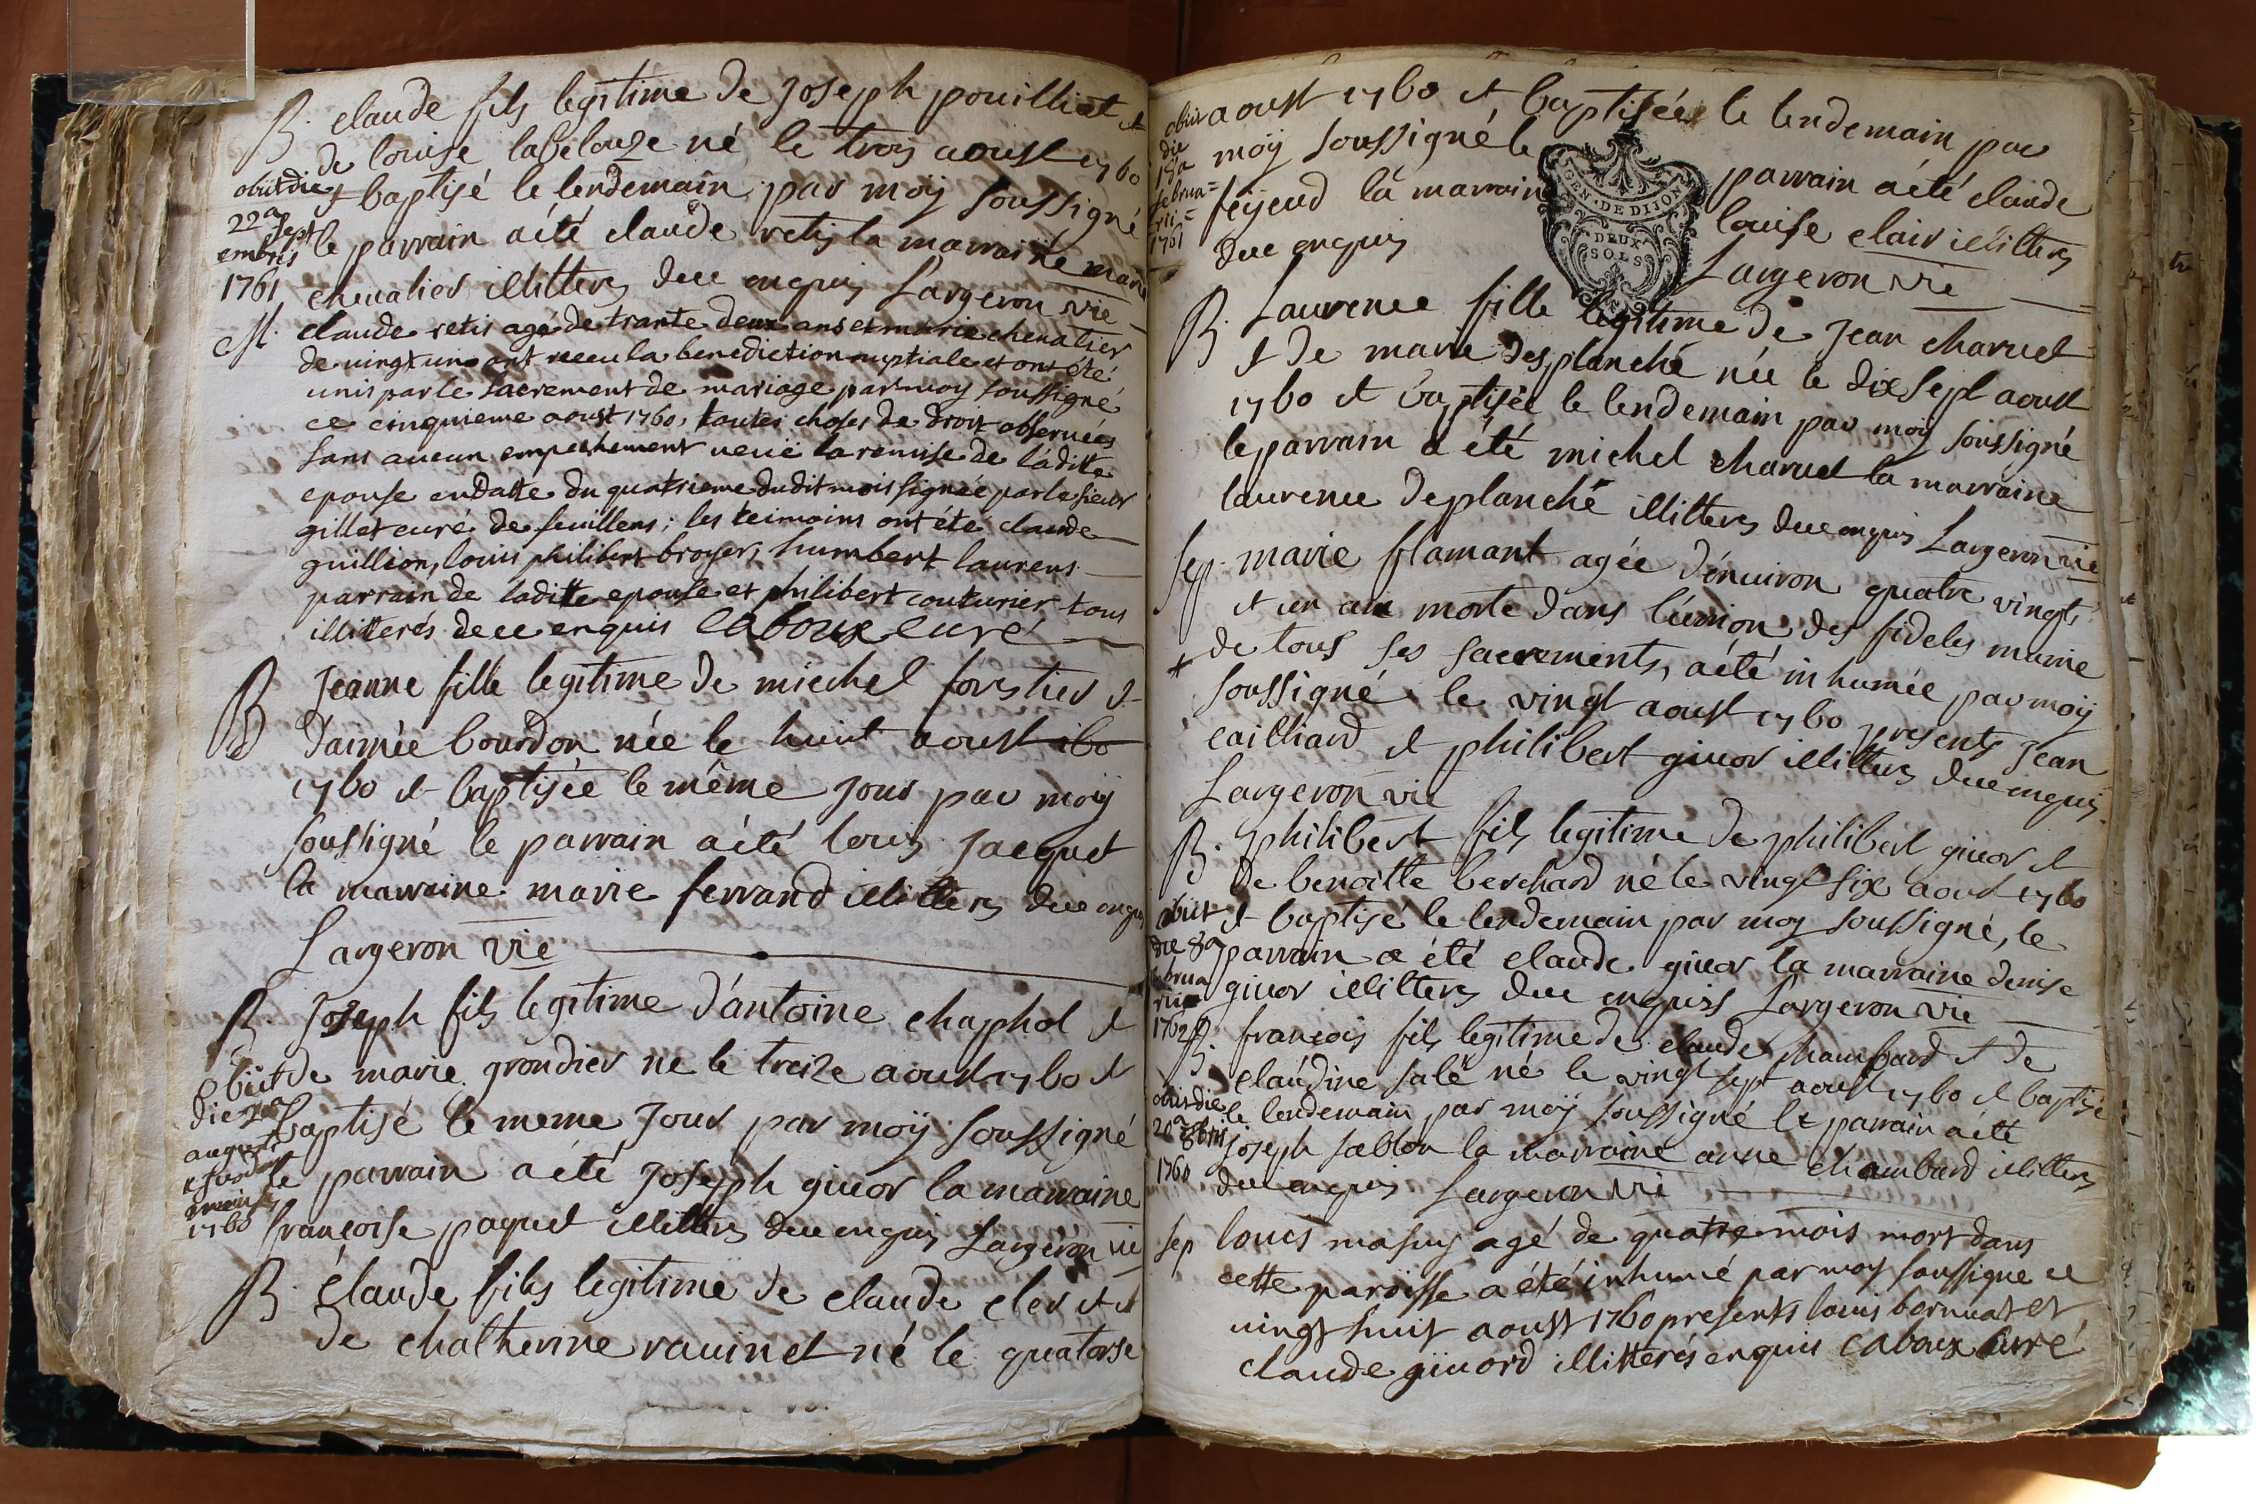 B. claude fils legitime de Joseph pouilliat et
de louise labelouze né le trois aoust 1760
et baptisé le lendemain par moÿ soussigné
le parrain a été claude retis la marraine marie
chevalier illitterés deue enquis Largeron vic
obiit die
22a sept
embris
1761
M. claude retis agé de trante deux ans et marie chevalier
de vingt un ont receu la benediction nuptiale et ont été
unis par le sacrement de mariage par moy soussigné
ce cinquieme aoust 1760, toutes choses de droit observées
sans aucun empeschement veüe la remise de laditte
epouse en datte du quatrieme dudit mois signée par le sieur
gillet curé de feuillens; les teimoins ont été claude
guillion, louis philibert broyer, humbert laurens
parrain de laditte epouse et philibert couturier tous
illitterés deue enquis caboux curé
B Jeanne fille legitime de miechel forestier et
d'aimée bourdon née le huit aoust ibo
1760 et baptisée le même jour par moÿ
soussigné le parrain a été louis jacquet
la marraine marie ferrand illitterés deue enquis
Largeron vic
B. Joseph fils legitime d'antoine chaphol et
de marie grondier ne le treize aoust 1760 et
baptisé le meme jour par moÿ soussigné
le parrain a été Joseph givor la marraine
françoise paquet illitterés deue enquis Largeron vic
obiit
die
augusti
1760
B. claude fils legitime de claude cler et
de chatherine ravinet né le quatorse
aoust 1760 et baptisée le lendemain par
moÿ soussigné le parrain a été claude
feÿeud la marraine louise clair illitterés
deue enquis Largeron vic
obiit
die
februa=
rii=
1761
GEN. DE DIJON
DEUX
SOLS
B. Laurence fille legitime de Jean charuet
et de marie desplanché née le dix sept aoust
1760 et baptisée le lendemain par moÿ soussigné
le parrain a été michel charuet la marraine
laurence deplanché illitterés deue enquis Largeron vic
Sep. marie flamant agée d'environ quatre vingt,
et un an morte dans l'union des fideles munie
de tous ses sacrements, a été inhumée par moÿ
soussigné le vingt aoust 1760 presents Jean
cailliard et philibert givor illitterés deue enquis
Largeron vic
B. philibert fils legitime de philibert givor et
de benoitte berchard né le vingt six aoust 1760
et baptisé le lendemain par moy soussigné, le
parrain a été claude givor la marraine denise
givor illitterés deue enquiss Largeron vic
obiit
die 8a
februa
rii
1762
B. françois fils legitime de claude chambard et de
claudine salé né le vingt sept aoust 1760 et baptisé
le lendemain par moÿ soussigné le parrain a été
joseph sablon la marraine anne chambard illitterés
deue enquis Largeron vic
obiit die
20a 8bris
1760
Sep louis masuy agé de quatre mois mort dans
cette paroisse a été inhumé par moy soussigné ce
vingt huit aoust 1760 presents louis bornuat et
claude givord illitterés enquis caboux curé